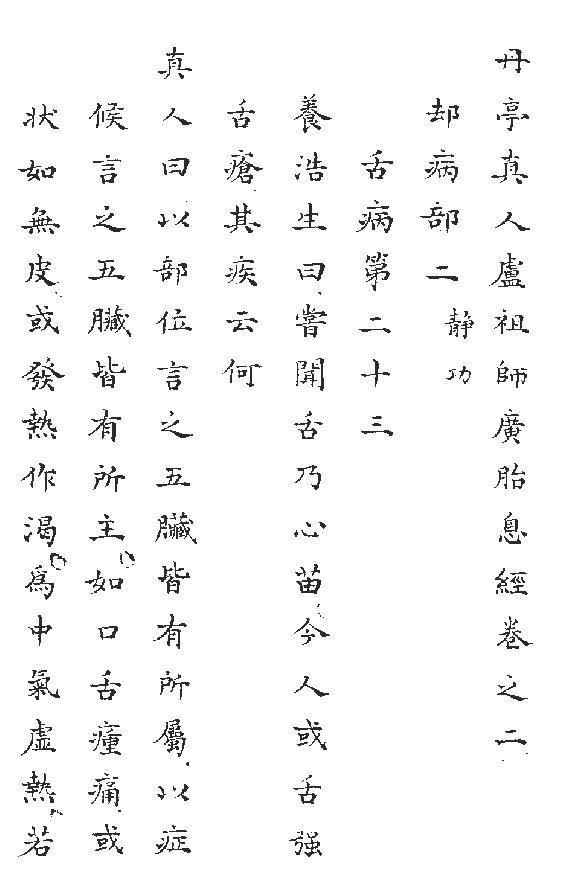 丹亭真人盧祖師廣胎息經卷之二
却病部二 靜功
舌病第二十三
養浩生曰嘗聞舌乃心苗今人或舌强
舌瘡其疾云何
真人曰以部位言之五臟皆有所屬以症
候言之五臟皆有所主如口舌瘇痛或
狀如無皮或發熱作渴爲中氣虛熱若